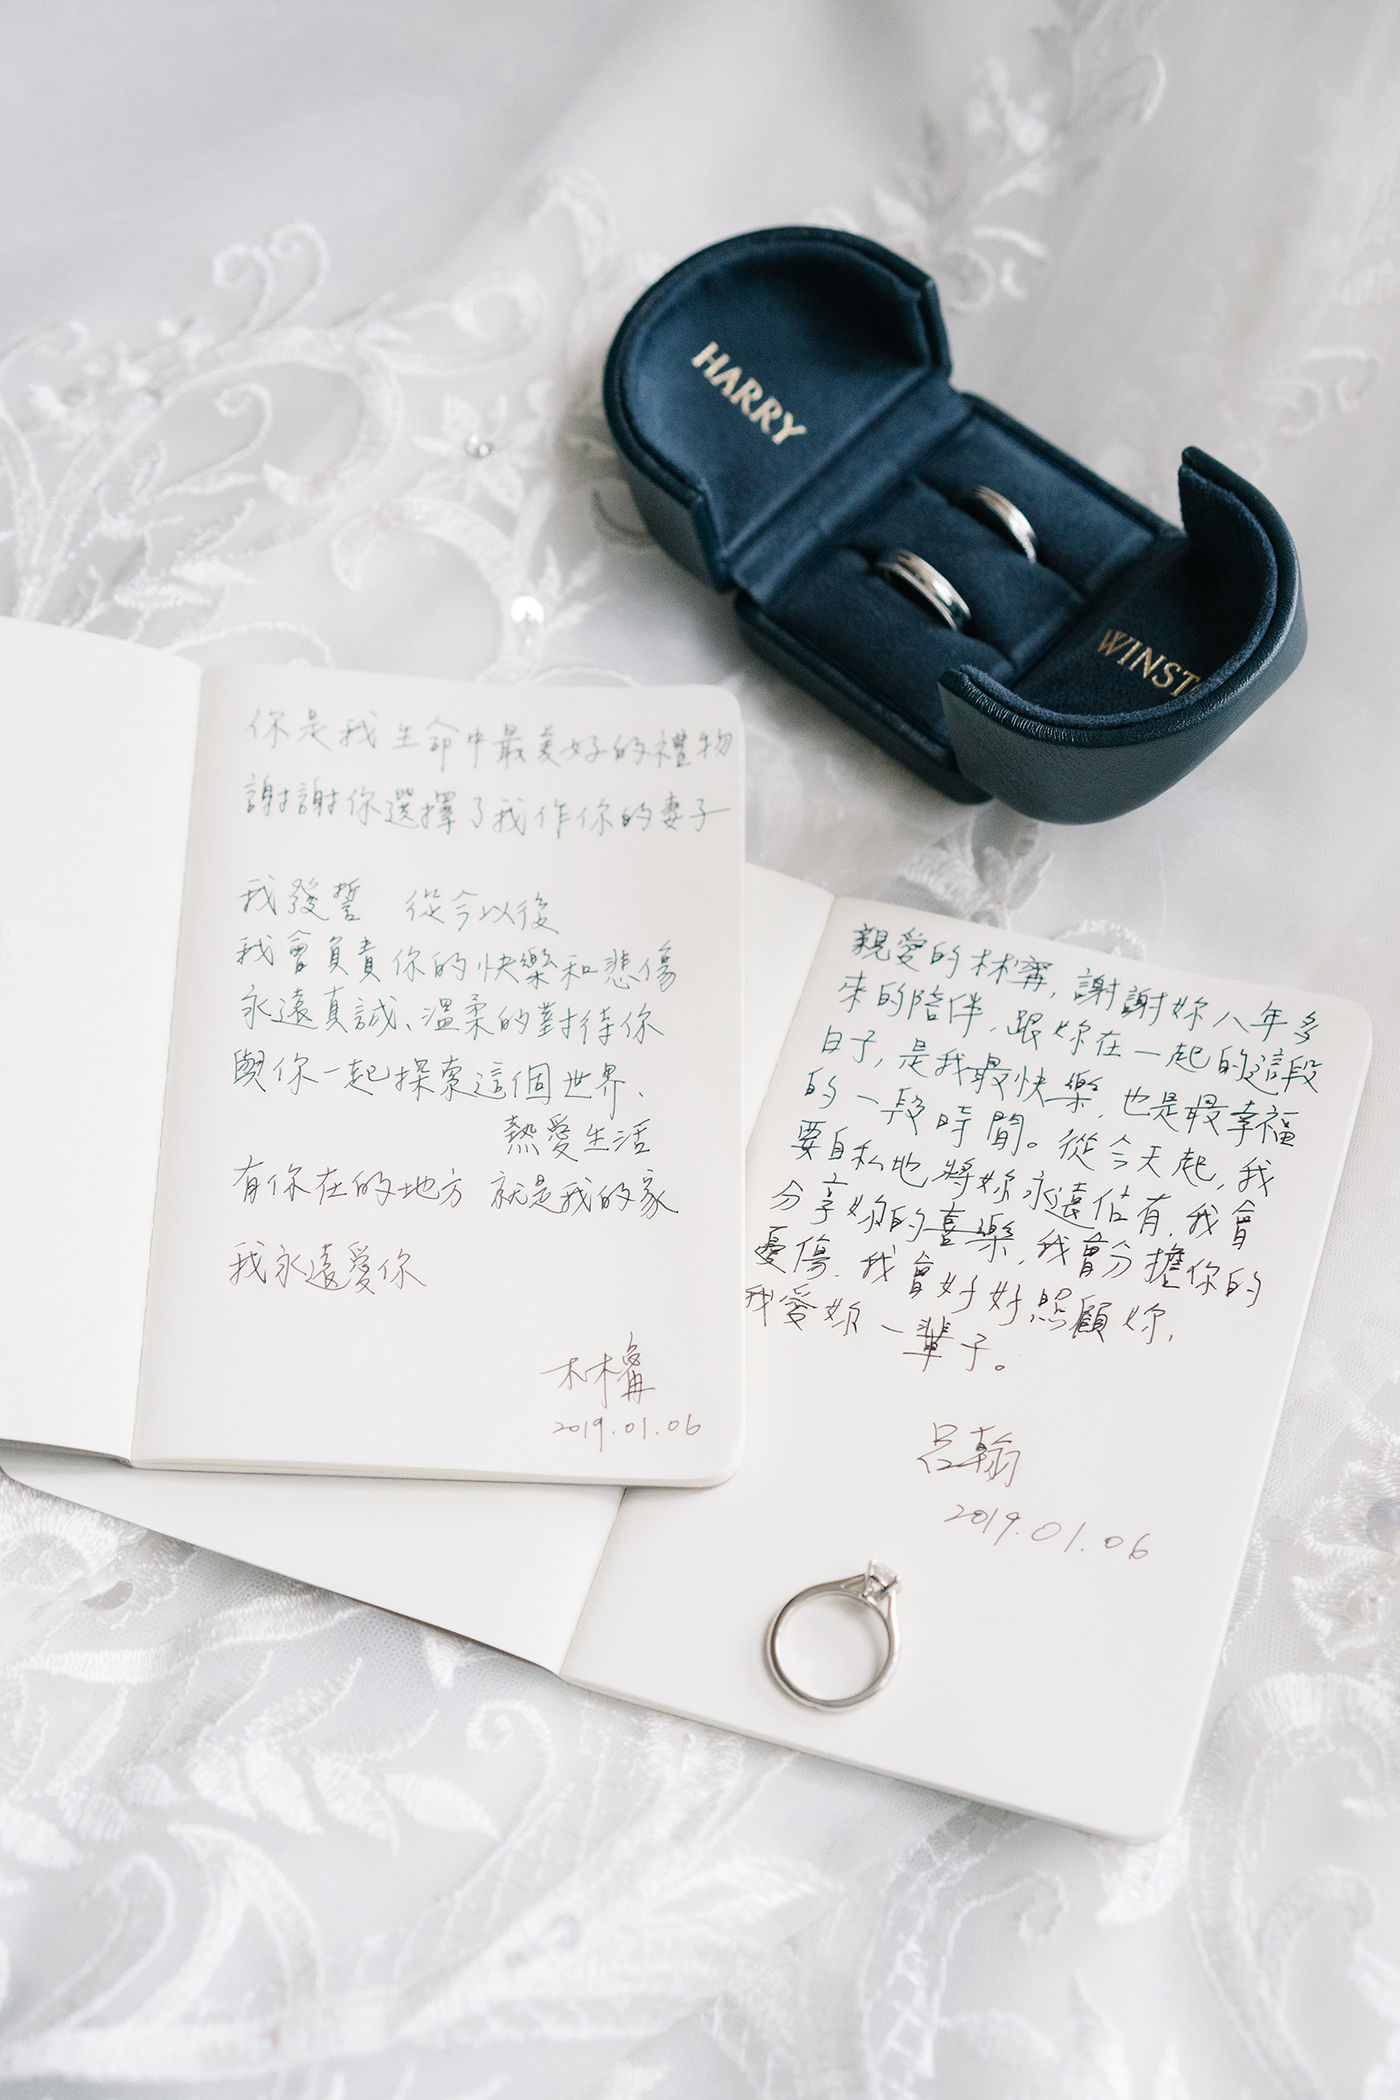 HARRY
WINST
你是我生命中最美好的禮物
謝謝你選擇了我作你的妻子
我發誓 從今以後
我會負責你的快樂和悲傷
永遠真誠、溫柔的對待你
與你一起探索這個世界、
熱愛生活
有你在的地方 就是我的家
我永遠愛你
林寗
2019.01.06
親愛的林寗, 謝謝妳八年多
來的陪伴, 跟妳在一起的這段
日子, 是我最快樂, 也是最幸福
的一段時間。從今天起, 我
要自私地將妳永遠佔有, 我會
分享妳的喜樂, 我會分擔你的
憂傷, 我會好好照顧妳,
我愛妳一輩子。
呂翰
2019.01.06